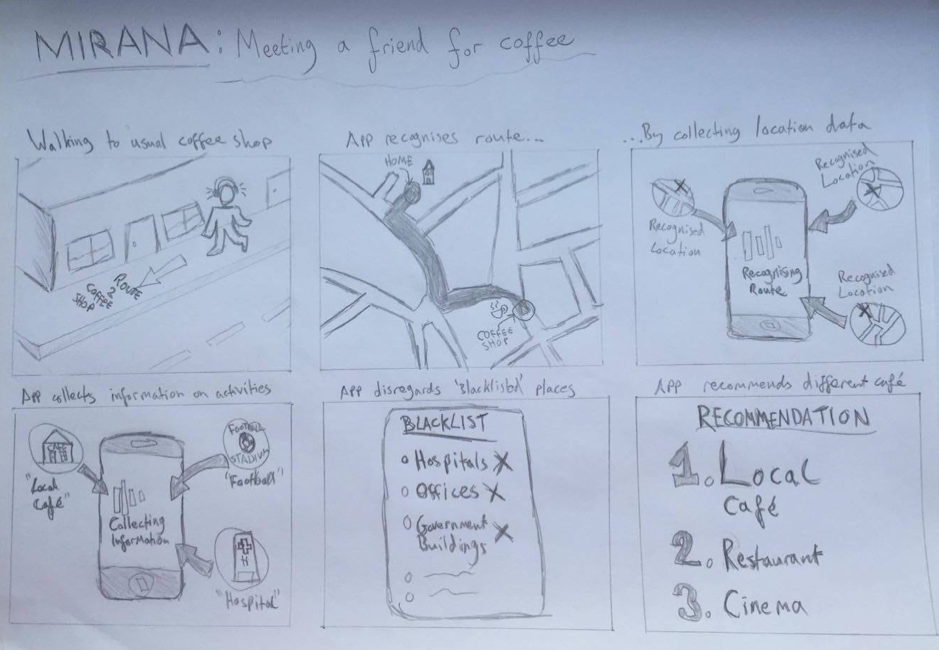 MIRANA: Meeting a friend for coffee
Walking to usual coffee shop
ROUTE
2
COFFEE
SHOP
App recognises route...
HOME
COFFEE
SHOP
...By collecting location data
Recognised
Location
Recognised
Location
Recognising
Route
Recognised
Location
App collects information on activities
CAFE
"Local
Café"
FOOTBALL
STADIUM
"Football"
Collecting
Information
H
"Hospital"
App disregards 'Blacklisted' places
BLACKLIST
Hospitals X
Offices X
Government X
Buildings
App recommends different café
RECOMMENDATION
1. Local
Café
2. Restaurant
3. Cinema